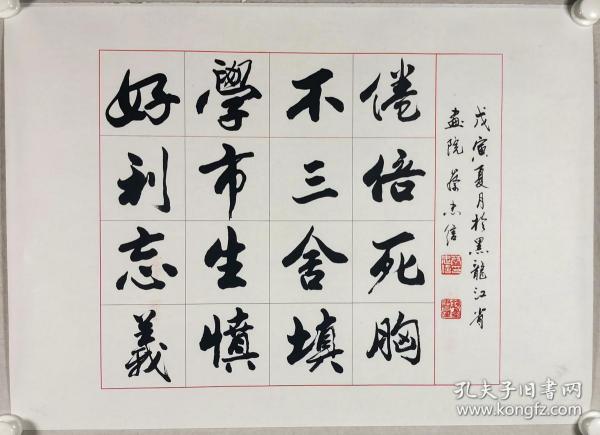 好學不倦
利市三倍
忘生舍死
義憤填胸
戊寅夏月於黑龍江省
畫院
孔夫子旧书网
www.kongfz.com